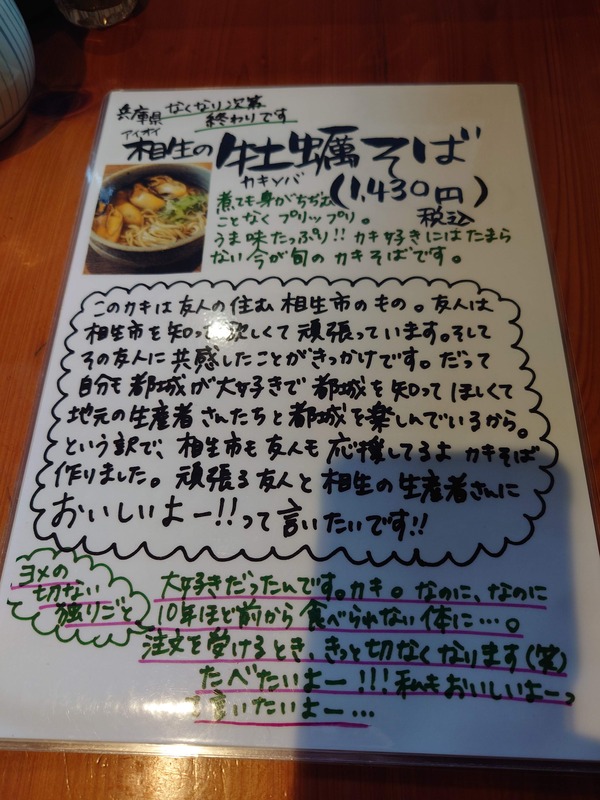 兵庫県 なくなり次第
終わりです
アイオイ
相生の牡蠣そば
カキソバ
(1,430円)
税込
煮ても身がちぢむ
ことなく プリップリ。
うま味たっぷり!! カキ好きにはたまら
ない今が旬の カキそばです。
このカキは友人の住む 相生市のもの。友人は
相生市を知って欲しくて 頑張っています。そして
その友人に 共感したことがきっかけです。だって
自分も 都城が大好きで 都城を知って ほしくて
地元の生産者さんたちと都城を楽しんでいるから。
という訳で、相生市も友人も 応援してるよ カキそば
作りました。頑張る友人と 相生の生産者さんに
おいしいよー!!って言いたいです!!
ヨメの
切ない
独りごと
大好きだったんです。カキ。なのに、なのに
10年ほど前から 食べられない体に…。
注文を受けるとき、きっと切なくなります(笑)
たべたいよー!!! 私もおいしいよーっ
言いたいよー…